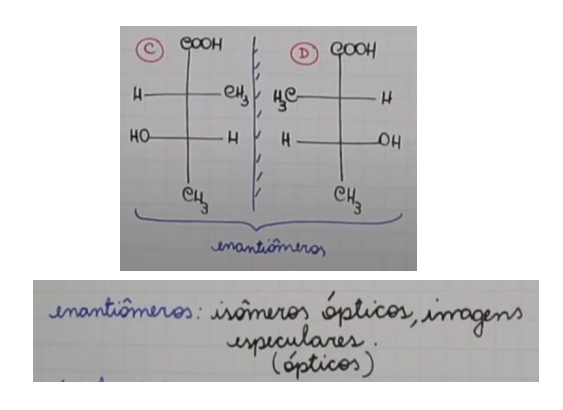 C COOH D COOH
H CH3 H3C H
HO H H OH
CH3 CH3
enantiômeros
enantiômeros: isômeros ópticos, imagens
especulares.
(ópticos)